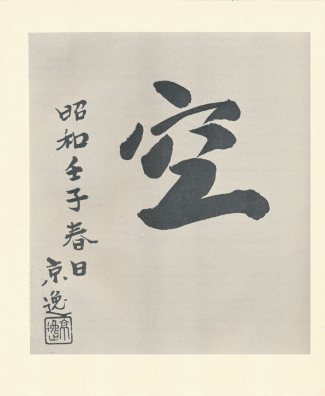 空
昭和壬子春日
京逸